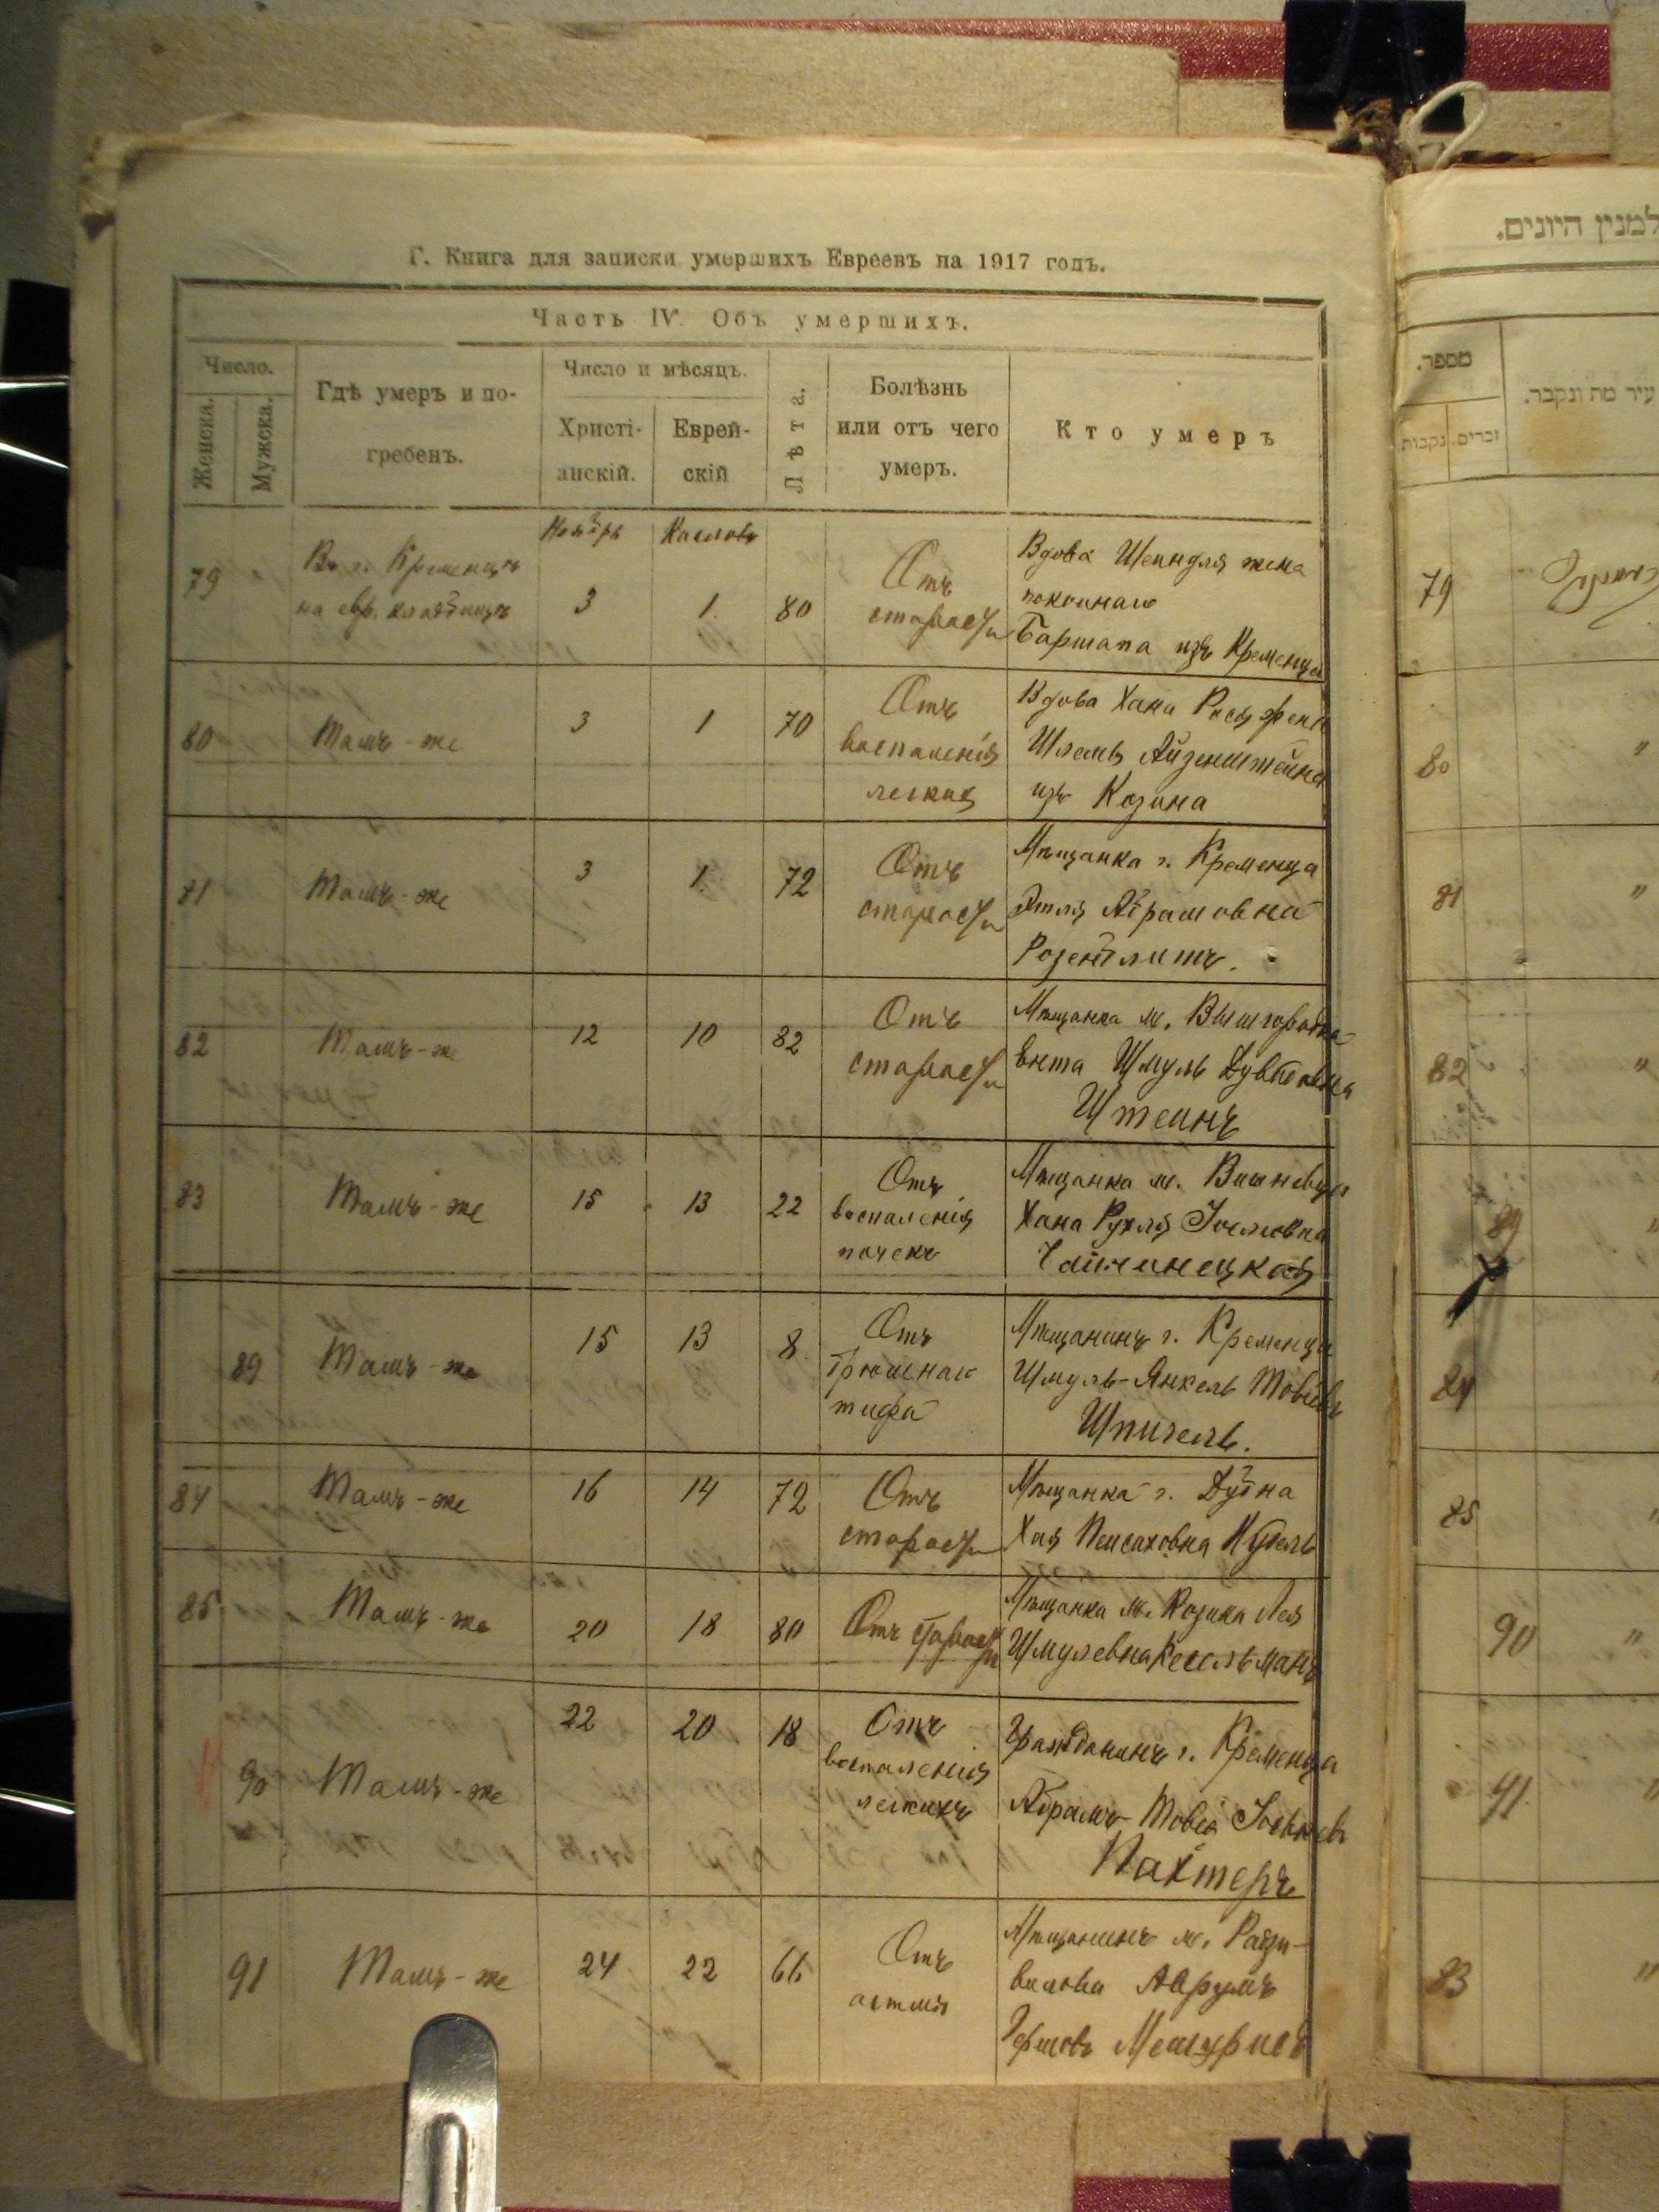 Г. Книга для записки умершихъ Евреевъ на 1917 годъ.
Часть IV. Объ умершихъ.
Число.
Женска.
Мужска.
Гдѣ умеръ и по-
гребенъ.
Число и мѣсяцъ.
Христі-
анскій.
Еврей-
скій
Лѣта.
Болѣзнь
или отъ чего
умеръ.
Кто умеръ
Ноябрь Кислевъ
79 Въ г. Кременцѣ
на евр. кладбищѣ
3 1. 80
Отъ
старости
Вдова Шейндля жена
покойнаго
изъ Кременца
80 Тамъ-же 3 1 70
Отъ
воспаленія
легкихъ
Вдова Хана Рися жена
Шлемы Айзенштейна
изъ Козина
81 Тамъ-же 3 1. 72
Отъ
старости
Мѣщанка г. Кременца
Этля Абрамовна
Розенблитъ.
82 Тамъ-же 12 10 82
Отъ
старости
Мѣщанка м. Вышгородка
Ента Шмуль Дувидовна
Штейнъ
83 Тамъ-же 15 13 22
Отъ
воспаленія
почекъ
Мѣщанка м. Вишневца
Хана Рухля
89 Тамъ-же 15 13 8
Отъ
брюшнаго
тифа
Мѣщанинъ г. Кременца
Шмуль-Янкель Товіевъ
Шпигель.
84 Тамъ-же 16 14 72
Отъ
старости
Мѣщанка г. Дубна
Хая Пейсаховна
85 Тамъ-же 20 18 80 Отъ старости
Мѣщанка м. Козина Лея
Шмулевна Кесельманъ
90 Тамъ-же 22 20 18
Отъ
воспаленія
легкихъ
Гражданинъ г. Кременца
Абрамъ-Товія
Пахтеръ
91 Тамъ-же 24 22 66
Отъ
астмы
Мѣщанинъ м. Радзи-
вилова Аврумъ
Гершовъ
למנין היונים.
מספר.
זכרים
נקבות
עיר מת ונקבר.
79
80 "
81 "
82 "
89 "
84
85 "
90 "
91.
83 "